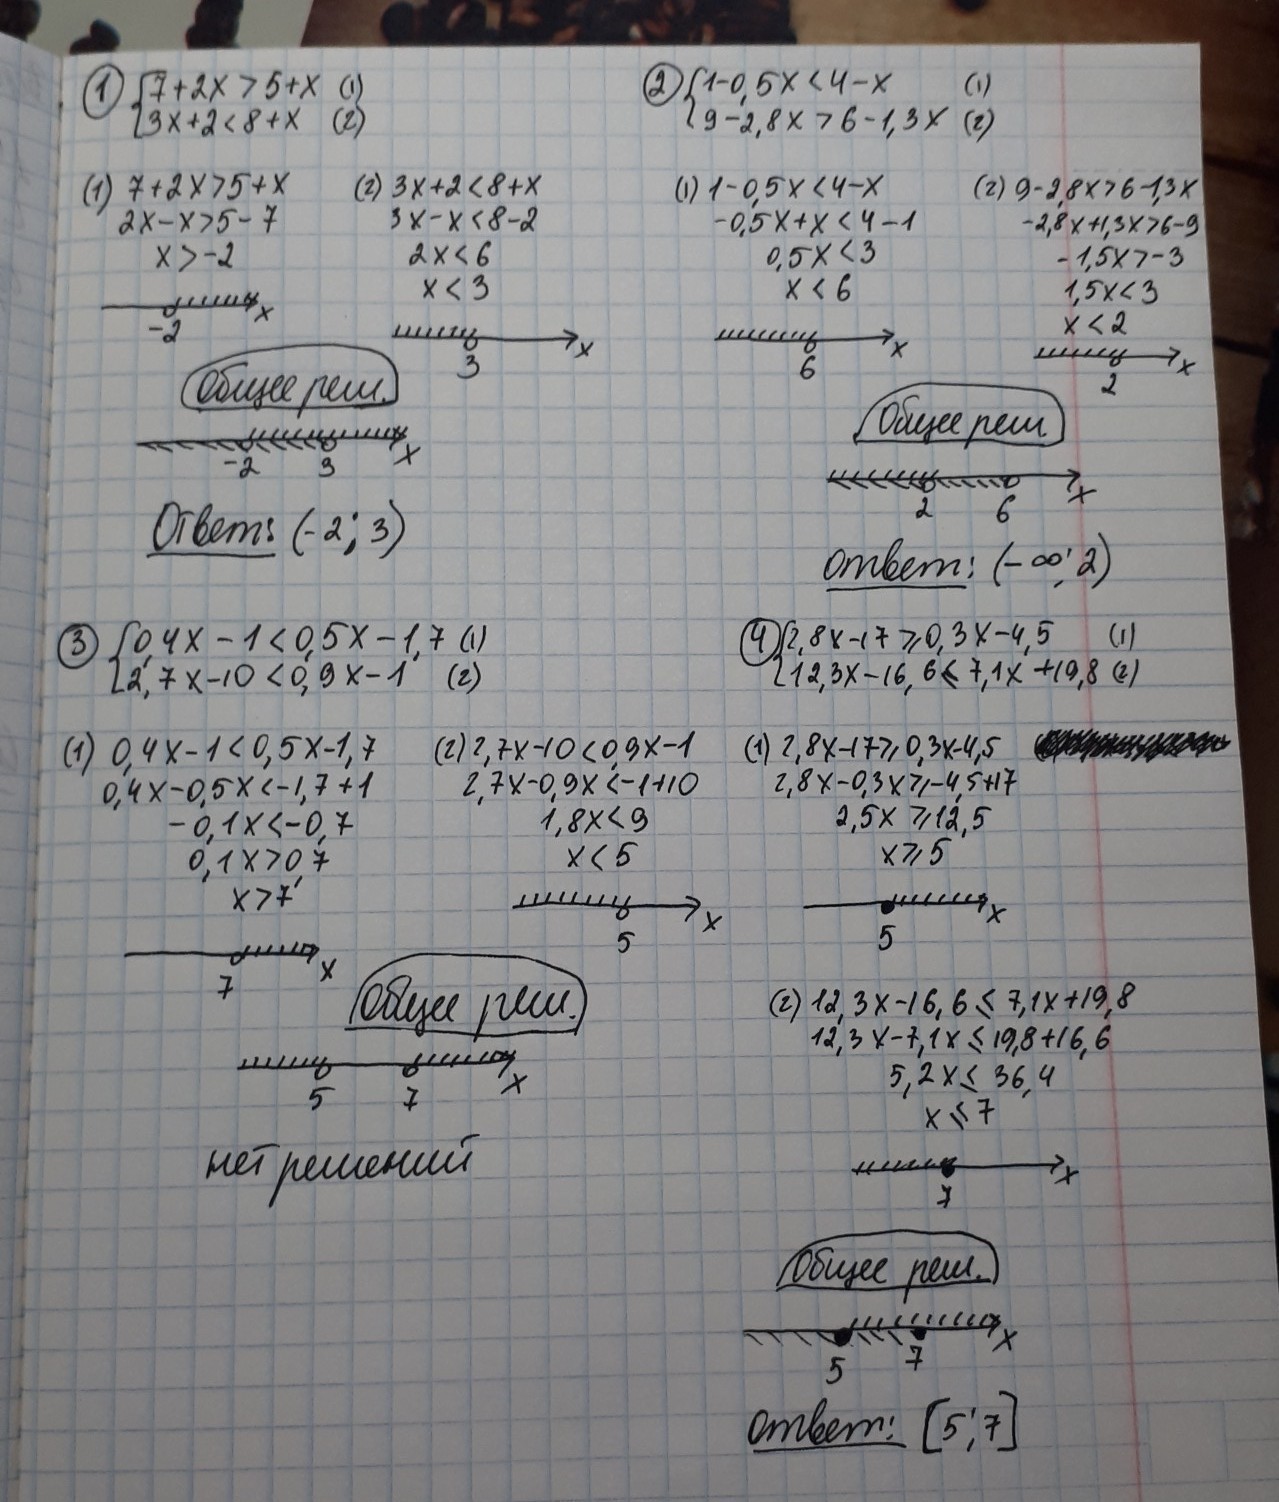 ① {7+2x>5+x (1)
{3x+2<8+x (2)
(1) 7+2x>5+x
2x-x>5-7
x>-2
-2
x
(2) 3x+2<8+x
3x-x<8-2
2x<6
x<3
3
x
Общее реш.
-2 3 x
Ответ: (-2; 3)
② {1-0,5x<4-x (1)
{9-2,8x>6-1,3x (2)
(1) 1-0,5x<4-x
-0,5x+x<4-1
0,5x<3
x<6
6
x
(2) 9-2,8x>6-1,3x
-2,8x+1,3x>6-9
-1,5x>-3
1,5x<3
x<2
2
x
Общее реш
2 6 x
Ответ: (-∞; 2)
③ {0,4x-1<0,5x-1,7 (1)
{2,7x-10<0,9x-1 (2)
(1) 0,4x-1<0,5x-1,7
0,4x-0,5x<-1,7+1
-0,1x<-0,7
0,1x>0,7
x>7
7
x
(2) 2,7x-10<0,9x-1
2,7x-0,9x<-1+10
1,8x<9
x<5
5
x
Общее реш.
5 7 x
нет решений
④ {2,8x-17⩾0,3x-4,5 (1)
{12,3x-16,6⩽7,1x+19,8 (2)
(1) 2,8x-17⩾0,3x-4,5
2,8x-0,3x⩾-4,5+17
2,5x⩾12,5
x⩾5
5
x
(2) 12,3x-16,6⩽7,1x+19,8
12,3x-7,1x⩽19,8+16,6
5,2x⩽36,4
x⩽7
7
x
Общее реш.
5 7 x
Ответ: [5; 7]